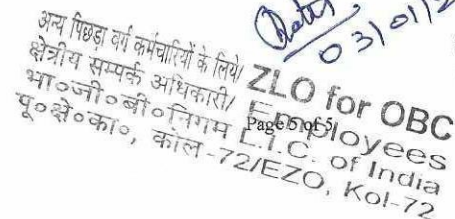 03/01/2
अन्य पिछड़ा वर्ग कर्मचारियों के लिये/ ZLO for OBC
क्षेत्रीय सम्पर्क अधिकारी/ Employees
Page 5 of 5
भा०जी०बी०निगम L.I.C. of India
पू०क्षे०का०, कोल-72/EZO, Kol-72